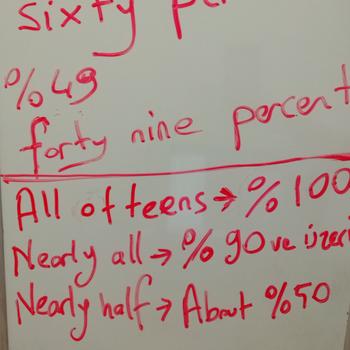 sixty per
%49
forty nine percent
All of teens → %100
Nearly all → %90 ve üzeri
Nearly half → About %50